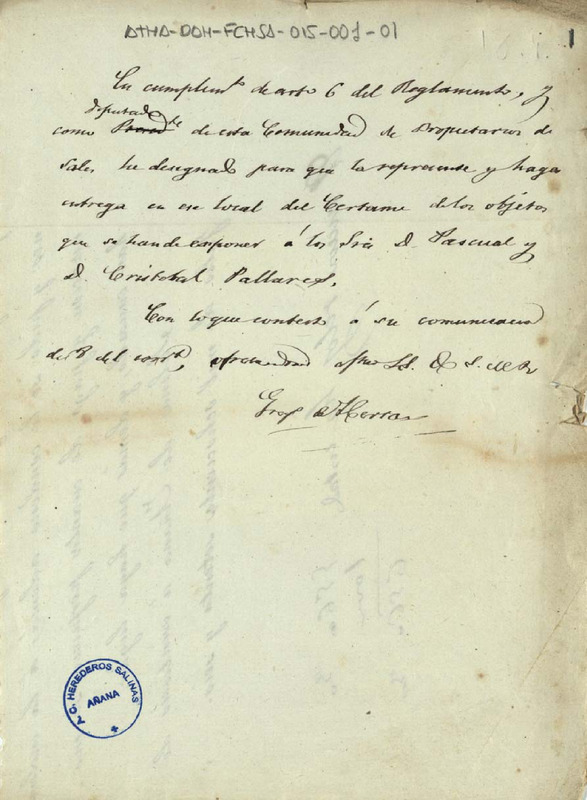 ATHA-DAH-FCHSA-015-001-01
1
En cumplimto de arto 6 del Reglamento, y
diputado
como de esta Comunidad de Propietarios de
Sales he designado para que la represente y haga
entrega en ese local del Certame de los objetos
que se han de esponer á los Sres D. Pascual y
D. Cristobal Pallares,
Con lo que contesto á su comunicacion
de 8 del corrte, afmo S.S. Q. S. M. B
Herran
C. HEREDEROS SALINAS
AÑANA